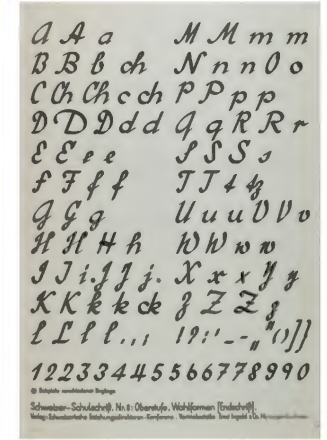 a A a M M m m
B B b ch N n n O o
C Ch Ch c ch P P p p
D D D d d q q R R r
E E e e S S S s
F F f f T T t tz
G G g U u u V V v
H H H h W W w w
I I i. J J j. X x x Y y
K K k k ck Z Z Z z
L L l l . , ; ! ? : ' - - „ " ( ) ] ]
1 2 2 3 3 4 4 5 5 6 6 7 7 8 8 9 9 0
Beispiele verschiedener Eingänge
Schweizer-Schulschrift. Nr. 8: Oberstufe, Wahlformen (Endschrift).
Verlag: Schweizerische Erziehungsdirektoren-Konferenz.